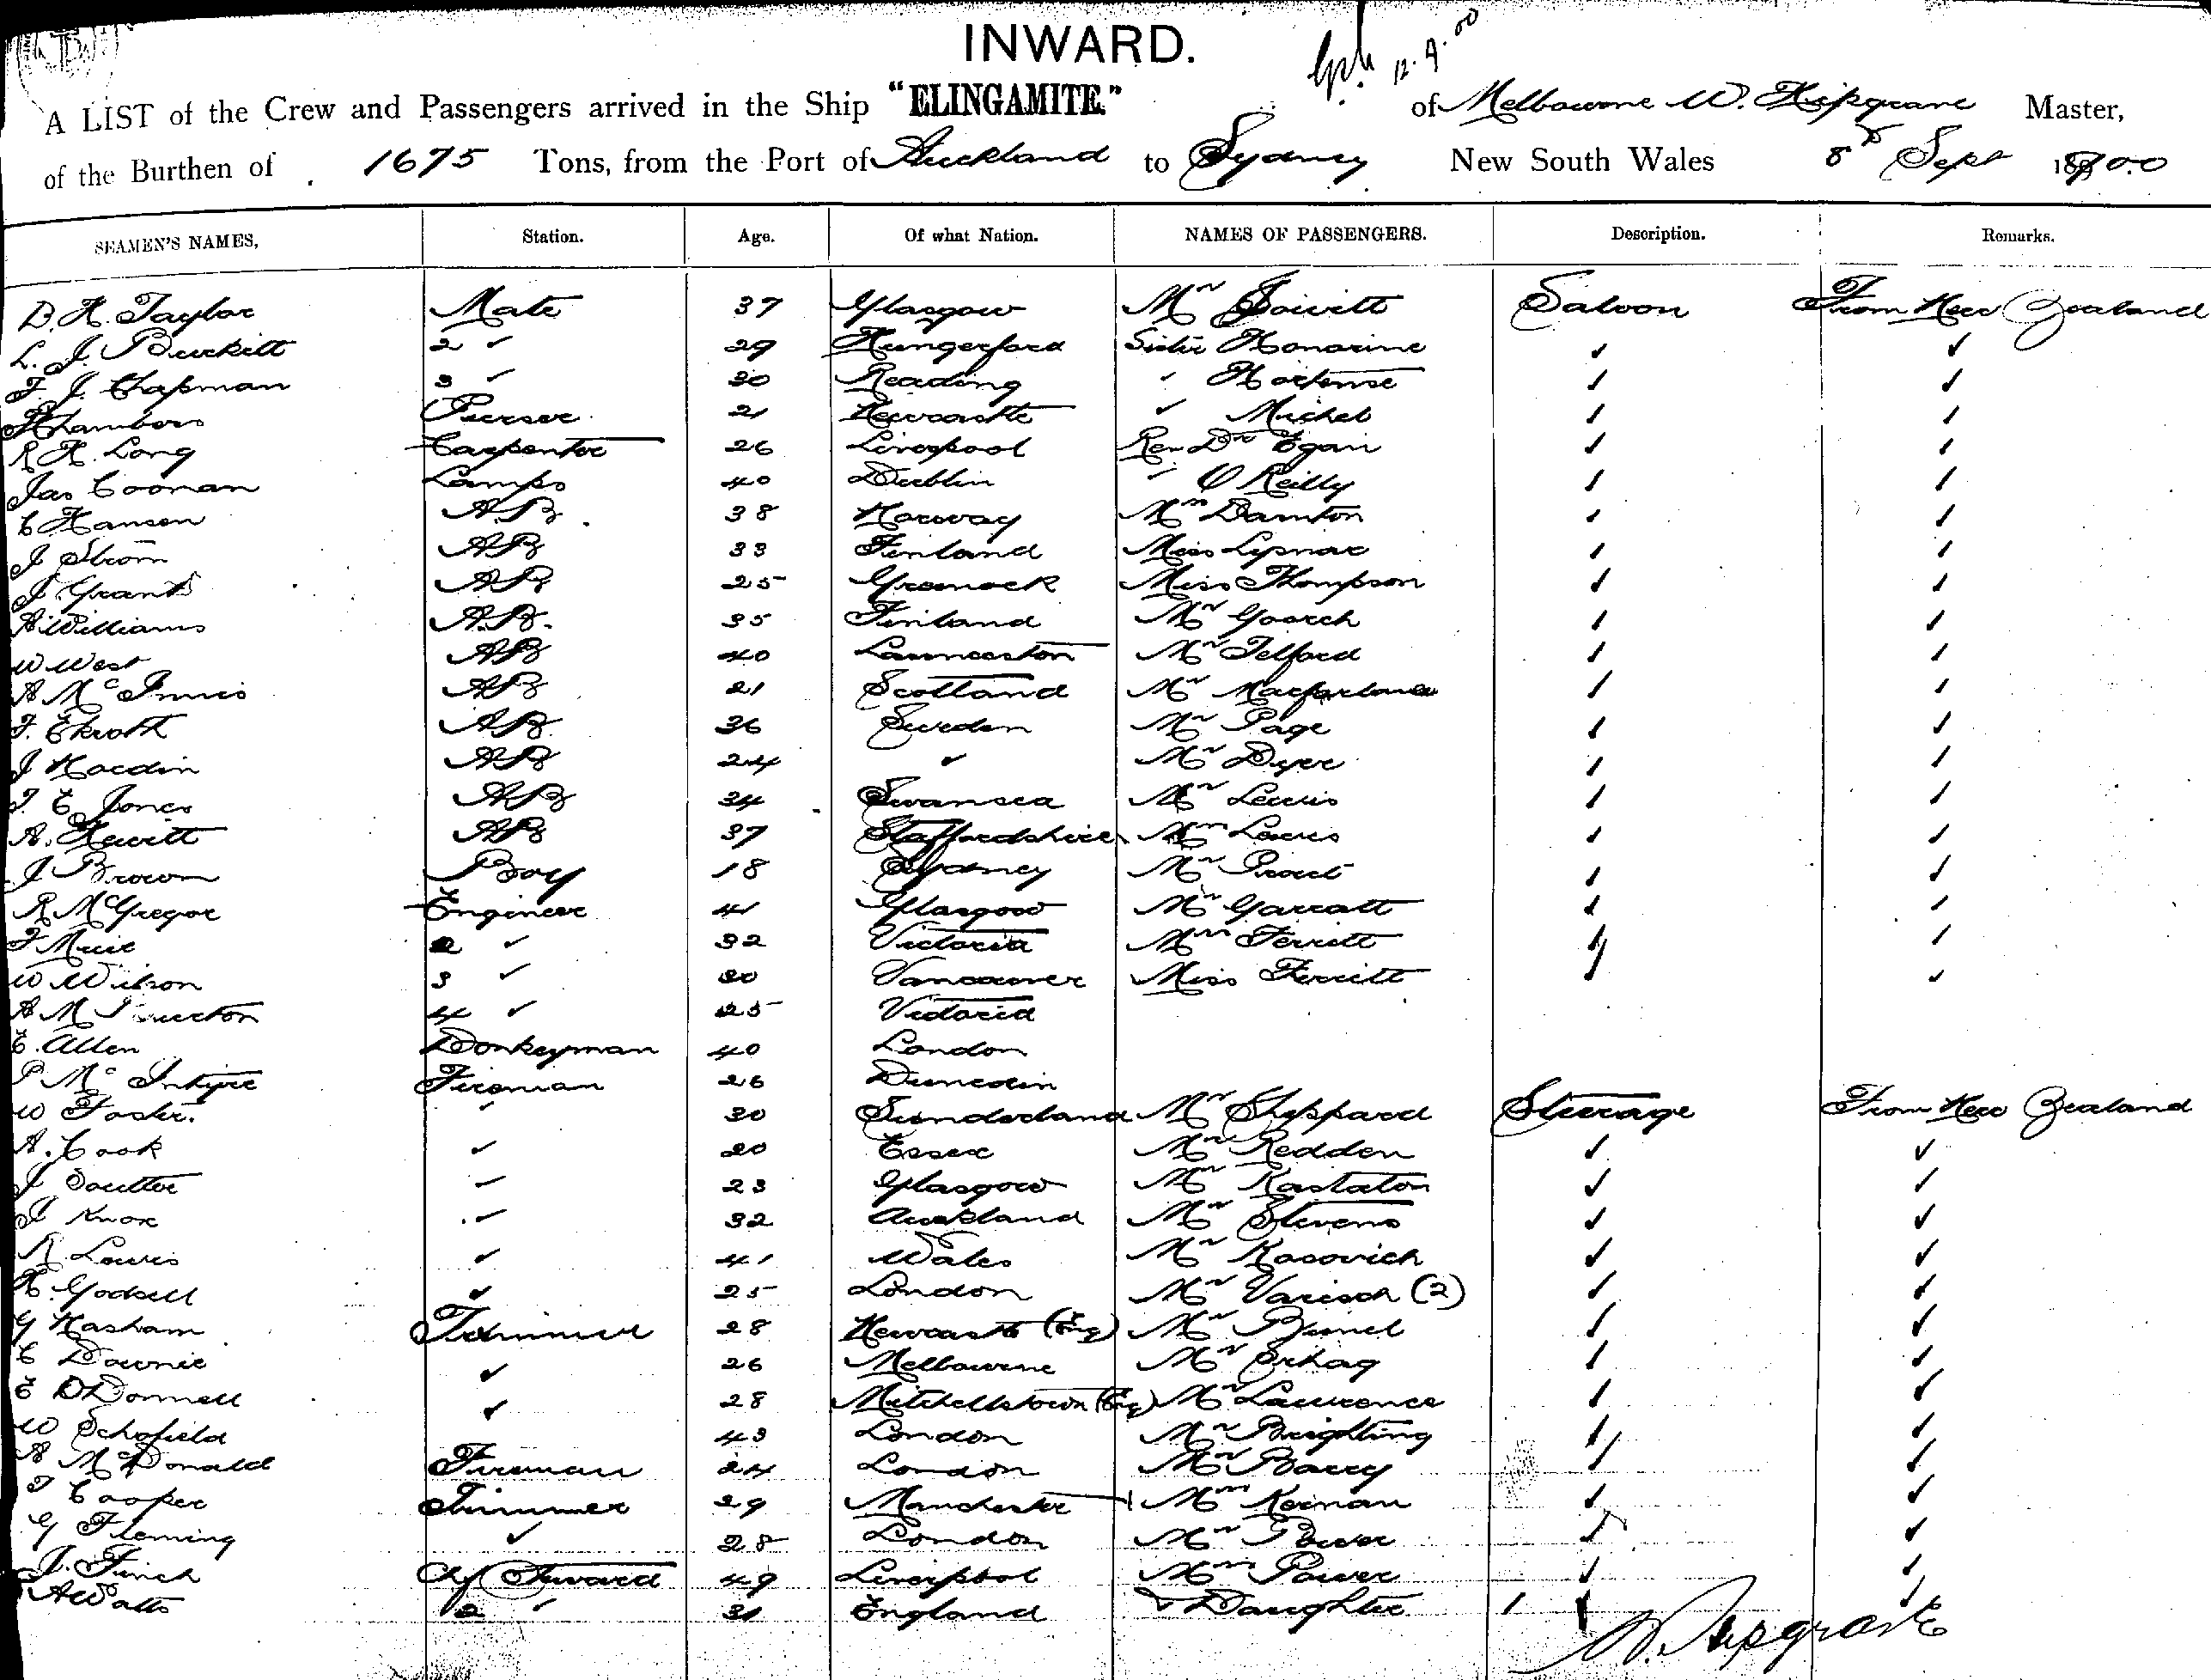 INWARD.
12.9.00
A LIST of the Crew and Passengers arrived in the Ship "ELINGAMITE" of Melbourne W. Master,
of the Burthen of 1675 Tons, from the Port of Auckland to Sydney New South Wales 8th Sept 1900
SEAMEN'S NAMES, Station. Age. Of what Nation. NAMES OF PASSENGERS. Description. Remarks.
D. H. Taylor Mate 37 Glasgow Mr Jowitt Saloon From New Zealand
L. J. Burkitt 2 ✓ 29 Hungerford Sister Honorine ✓ ✓
F. J. Chapman 3 ✓ 30 Reading ✓ Hortense ✓ ✓
Chambers Purser 21 Newcastle ✓ Michel ✓ ✓
R H. Long Carpenter 26 Liverpool Rev Dr Egan ✓ ✓
Jas Coonan Lamps 40 Dublin ✓ O'Reilly ✓ ✓
C Hansen A.B. 38 Norway Mrs Darnton ✓ ✓
J Strom AB 33 Finland Miss ✓ ✓
J Grant AB 25 Greenock Miss Thompson ✓ ✓
A Williams A.B. 35 Finland Mr Goorch ✓ ✓
W West AB 40 Launceston Mr Telford ✓ ✓
A McInnis AB 21 Scotland Mr Macfarlane ✓ ✓
F. Ekroth AB 36 Sweden Mr Page ✓ ✓
J Hardin AB 24 ✓ Mr Dyer ✓ ✓
T. E. Jones AB 34 Swansea Mr Lewis ✓ ✓
A. Hewitt AB 37 Staffordshire Mrs Lewis ✓ ✓
J Brown Boy 18 Sydney Mr Prout ✓ ✓
R McGregor Engineer 41 Glasgow Mr Garratt ✓ ✓
F Muir 2 ✓ 32 Victoria Mrs Ferritt ✓ ✓
W Wilson 3 ✓ 30 Vancouver Miss Ferritt ✓ ✓
A M 4 ✓ 25 Victoria
E. Allen Donkeyman 40 London
P McIntyre Fireman 26 Dunedin
W Foster. ✓ 30 Sunderland Mr Sheppard Steerage From New Zealand
A. Cook ✓ 20 Essex Mr Redden ✓ ✓
J Soutter ✓ 23 Glasgow Mrs Kastaton ✓ ✓
J Knox ✓ 32 Auckland Mr Stevens ✓ ✓
R. Lewis ✓ 41 Wales Mr Kosovich ✓ ✓
H. Godsell ✓ 25 London Mr Varisch (2) ✓ ✓
G Hasham Trimmer 28 Newcastle (Eng) Mr ✓ ✓
C Downie ✓ 26 Melbourne Mr ✓ ✓
E O'Donnell ✓ 28 Mitchellstown (Eng) Mr Lawrence ✓ ✓
W Schofield 43 London Mr Brighting ✓ ✓
A McDonald Fireman 24 London Mr Barry ✓ ✓
T Cooper Trimmer 29 Manchester Mrs Keenan ✓ ✓
G Fleming ✓ 28 London Mr Power ✓ ✓
J. Finch Chf Steward 49 Liverpool Mrs Power ✓ ✓
A Watts 2 ✓ 31 England & Daughter ✓ ✓